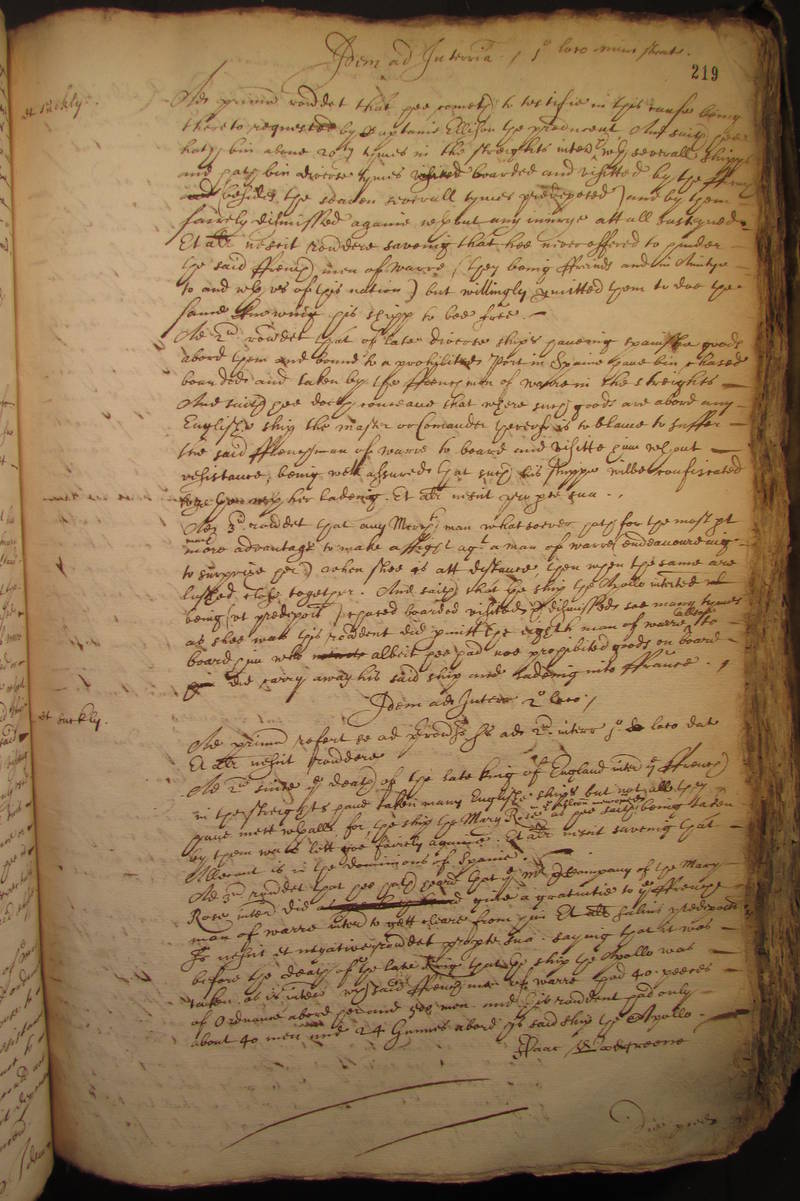 Idem ad Interria. / 1o. loco ministrat.
219
et Buckly.
Ad primu rondet that hee cometh to testifie in this cause being
thereto requested by Captaine Ellison the producent And saith hee
hath bin above 20ty tymes in the streights with severall shipps
and hath bin diverse tymes boarded and visitted by the ffrench
and (besides the seaven severall tymes predeposed) and by them
fairely dismissed againe without any iniurye att all susteyned
Et alr nescit rondere saveing that hee never offered to hinder
the said ffrench men of warre (they being ffreinds and in Amitye
to and with us of this nation) but willingly permitted them to doe the
same knowing his shipp to bee free.
Ad 2d rondet that of late diverse ships haveing spanish goods
abord them and bound to a prohibited Port in Spaine have bin chased
boarded and taken by the ffrench men of warre in the streights
And saith hee doth conceave that where such goods are abord any
English ship the master or Comander thereof is to blame to suffer
the said ffrenchman of warre to board and visitte him without
resistance, being well assured that such his shippe wilbe confiscated
her ladeing. Et alr nescit
Ad 3d rondet that any Merchts man whatsoever hath for the most pt
more advantage to make a ffight agt a man of warre endeavoureing
to surprize her) when shee is att distance, then when the same are
lashed close together. And saith that the ship the Apollo interted
being (ut predeposit) chased boarded visitted dismissed soe many tymes
as shee was this rondent did permitt the eighth man of warre to
board him who albeit hee had noe prohibited goods on board
did carry away his said ship and ladeing into ffrance.
Idem ad Interr 2o. loco /
et Buckly.
Ad primu refert se ad ad 2d. interr 1o. loco dat
Et alr nescit rondere
Ad 2d since ye death of the late king of England ye ffrench
in the streights have taken many English ships but not all they
have mett withall, for the ship the Mary Rose as hee saith being taken
by them was lett goe fairely againe. Et alr nescit saveing that
Allicant is in the dominions of Spaine.
Ad 3d rondet that hee hath heard that ye Mr & Company of the Mary
Rose did give a gratuitie to ye ffrench
man of warre to gett cleare from him Et alr
nescit et negative rondet saying that it was
before the death of the late King that the ship the Apollo was
taken as is said ffrench man of warre had 40 peeces
of Ordnance abord her and 500 men and this rondent had only
about 40 men and 24 Gunnes abord his said ship the Apollo.
Isaac